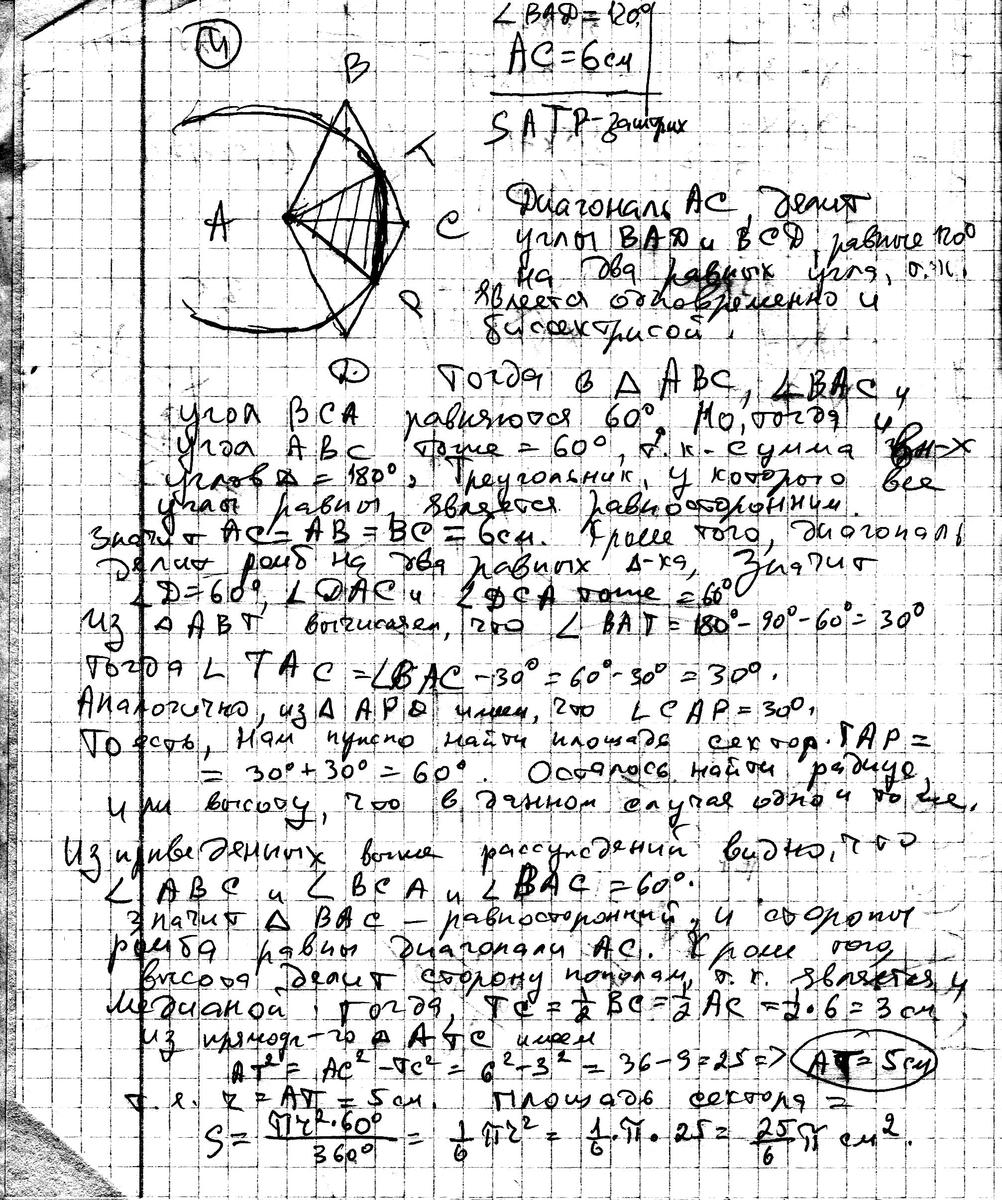 (4)
∠BAD = 120°
AC = 6 см
S ATP-заштрих
B
T
A
C
P
D
Диагональ AC делит
углы BAD и BCD, равные 120°
на два равных угла, т.к.
является одновременно и
биссектрисой.
Тогда в △ ABC, ∠BAC и
угол BCA равняются 60°. Но, тогда и
угол ABC тоже = 60°, т.к. сумма вн-х
углов △ = 180°. Треугольник, у которого все
углы равны, является равносторонним.
Значит AC = AB = BC = 6 см. Кроме того, диагональ
делит ромб на два равных △-ка, Значит
∠D = 60°, ∠DAC и ∠DCA тоже = 60°
Из △ABT вычисляем, что ∠BAT = 180° - 90° - 60° = 30°
Тогда ∠TAC = ∠BAC - 30° = 60° - 30° = 30°.
Аналогично, из △ APD имеем, что ∠CAP = 30°.
То есть, нам нужно найти площадь сектор. TAP =
= 30° + 30° = 60°. Осталось найти радиус,
или высоту, что в данном случае одно и то же.
Из приведенных выше рассуждений видно, что
∠ABC и ∠BCA и ∠BAC = 60°.
Значит △ BAC - равносторонний, и стороны
ромба равны диагонали AC. Кроме того,
высота делит сторону пополам, т.к. является и
медианой. Тогда, TC = 1/2 BC = 1/2 AC = 1/2 · 6 = 3 см.
Из прямоуг-го △ ATC имеем
AT² = AC² - TC² = 6² - 3² = 36 - 9 = 25 => AT = 5 см
т.е. r = AT = 5 см. Площадь сектора =
S = πr²·60°/360° = 1/6 πr² = 1/6 · π · 25 = 25/6 π см².